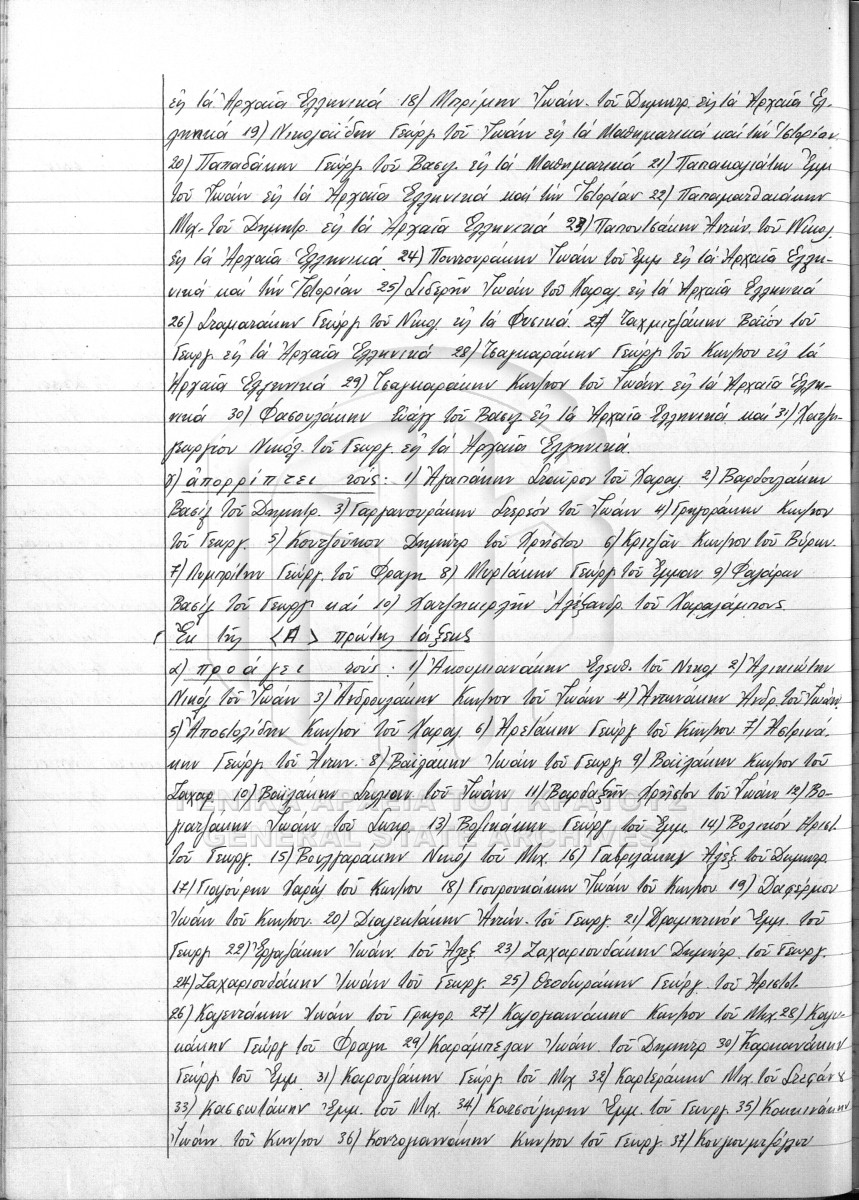 εἰς τὰ Ἀρχαῖα Ἑλληνικά 18) Μπρίμην Ἰωάν. τοῦ Δημητρ. εἰς τὰ Ἀρχαῖα Ἑλ-
ληνικά 19) Νικολαΐδην Γεώργ. τοῦ Ἰωάν. εἰς τὰ Μαθηματικά καὶ τὴν Ἱστορίαν
20) Παπαδάκην Γεώργ. τοῦ Βασιλ. εἰς τὰ Μαθηματικά 21) Παπακαλιάτην Ἐμμ
τοῦ Ἰωάν εἰς τὰ Ἀρχαῖα Ἑλληνικά καὶ τὴν Ἱστορίαν 22) Παπαματθαιάκην
Μιχ. τοῦ Δημητρ. εἰς τὰ Ἀρχαῖα Ἑλληνικά 23) Παπουτσάκην Ἀντών. τοῦ Νικολ.
εἰς τὰ Ἀρχαῖα Ἑλληνικά 24) Ποντουράκην Ἰωάν τοῦ Ἐμμ εἰς τὰ Ἀρχαῖα Ἑλλη-
νικά καὶ τὴν Ἱστορίαν 25) Σιδερῆν Ἰωάν τοῦ Χαραλ. εἰς τὰ Ἀρχαῖα Ἑλληνικά
26) Σταματάκην Γεώργ. τοῦ Νικολ. εἰς τὰ Φυσικά. 27) Ταχμιτζάκην Βαΐον τοῦ
Γεωργ. εἰς τὰ Ἀρχαῖα Ἑλληνικά 28) Τσαγκαράκην Γεώργ. τοῦ Κων/νου εἰς τὰ
Ἀρχαῖα Ἑλληνικά 29) Τσαγκαράκην Κων/νον τοῦ Ἰωάν. εἰς τὰ Ἀρχαῖα Ἑλλη-
νικά 30) Φασουλάκην Εὐάγγ τοῦ Βασιλ εἰς τὰ Ἀρχαῖα Ἑλληνικά καὶ 31) Χατζη-
γεωργίου Νικόλ. τοῦ Γεωργ. εἰς τὰ Ἀρχαῖα Ἑλληνικά.
γ) ἀπορρίπτει τούς: 1) Ἀγαπάκην Σταῦρον τοῦ Χαραλ 2) Βαρδουλάκην
Βασίλ τοῦ Δημητρ. 3) Γαργανουράκην Στερεόν τοῦ Ἰωάν 4) Γρηγοράκην Κων/νον
τοῦ Γεωργ. 5) Κουτζοῦκον Δημήτρ τοῦ Χρήστου 6) Κριτζᾶν Κων/νον τοῦ Βύρων.
7) Λυμπρίτην Γεώργ. τοῦ Φραγκ 8) Μυρτάκην Γεώργ τοῦ Ἐμμαν 9) Φαλάραν
Βασίλ τοῦ Γεωργ καὶ 10) Ἀλέξανδρ. τοῦ Χαραλάμπους.
Ἐκ τῆς <Α> πρώτης τάξεως
α) προάγει τούς: 1) Ἀκουμιανάκην Ἐλευθ. τοῦ Νικολ 2) Ἁλικιώτην
Νικόλ τοῦ Ἰωάν 3) Ἀνδρουλάκην Κων/νον τοῦ Ἰωάν 4) Ἀνδρ. τοῦ Ἰωάν.
5) Ἀποστολίδην Κων/νον τοῦ Χαραλ 6) Ἀρετάκην Γεώργ τοῦ Κων/νου 7) Ἀστρινά-
κην Γεώργ τοῦ Ἀντων. 8) Βαϊλάκην Ἰωάν τοῦ Γεωργ 9) Βαϊλάκην Κων/νον τοῦ
Ζαχαρ 10) Βαϊλάκην Στυλιαν τοῦ Ἰωάν 11) Βαρδαξῆν Χρῆστον τοῦ Ἰωάν 12) Βο-
γιατζάκην Ἰωάν τοῦ Σωτηρ. 13) Βολικάκην Γεώργ τοῦ Ἐμμ. 14) Βολικόν Ἀριστ.
τοῦ Γεωργ. 15) Βουλγαράκην Νικόλ τοῦ Μιχ 16) Γαβριλάκην Ἀλεξ. τοῦ Δημητρ
17) Γιαλούρην Χαράλ τοῦ Κων/νου 18) Γιουρουκάκην Ἰωάν τοῦ Κων/νου 19) Δαφέρμον
Ἰωάν τοῦ Κων/νου. 20) Διαλεκτάκην Ἀντών. τοῦ Γεωργ. 21) Δραμητινόν Ἐμμ. τοῦ
Γεωργ 22) Ἐργαζάκην Ἰωάν. τοῦ Ἀλεξ 23) Ζαχαριουδάκην Δημήτρ. τοῦ Γεωργ.
24) Ζαχαριουδάκην Ἰωάν τοῦ Γεωργ. 25) Θεοδωράκην Γεώργ. τοῦ Ἀριστοτ.
26) Καλεντάκην Ἰωάν τοῦ Γρηγορ. 27) Καλογιαννάκην Κων/νον τοῦ Μιχ. 28) Καλυ-
κάκην Γεώργ τοῦ Φραγκ 29) Καράμπελαν Ἰωάν. τοῦ Δημητρ 30) Καρκανάκην
Γεώργ τοῦ Ἐμμ 31) Καρουζάκην Γεώργ τοῦ Μιχ 32) Καρτεράκην Μιχ. τοῦ Στεφάν
33) Κασσωτάκην Ἐμμ. τοῦ Μιχ. 34) Κατσούγκρην Ἐμμ. τοῦ Γεωργ 35) Κοκκινάκην
Ἰωάν τοῦ Κων/νου 36) Κοντογιαννάκην Κων/νον τοῦ Γεωργ. 37)
ΓΕΝΙΚΑ ΑΡΧΕΙΑ ΤΟΥ ΚΡΑΤΟΥΣ
GENERAL STATE ARCHIVES